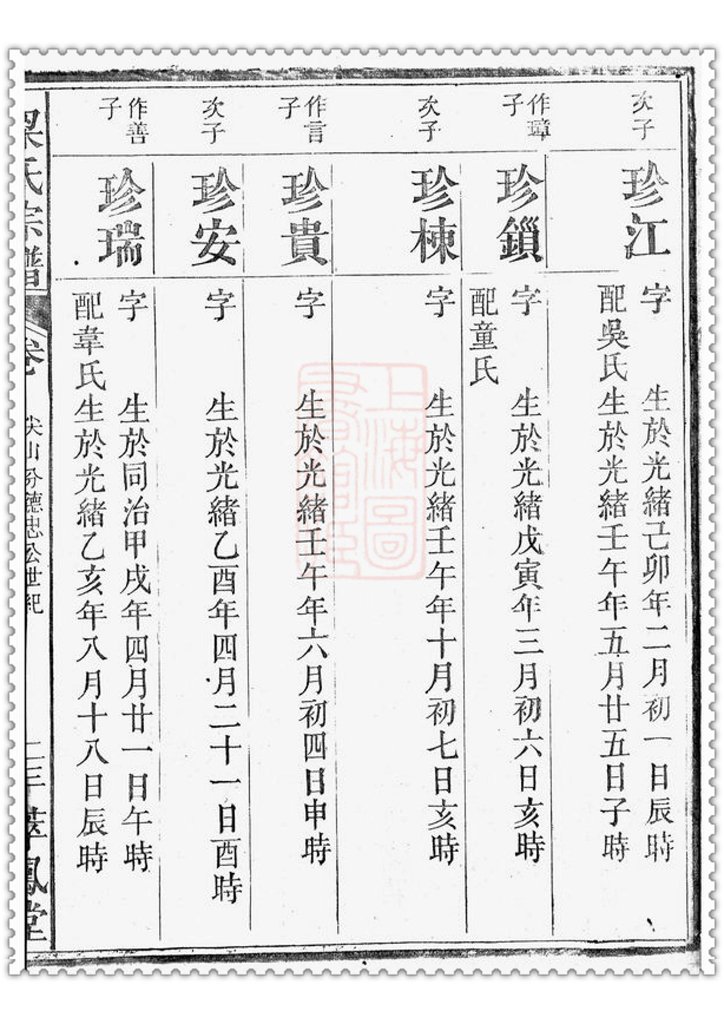 次子
珍江
字
生於光緒己卯年二月初一日辰時
配吳氏生於光緒壬午年五月廿五日子時
作璋
子
珍鎖
字
生於光緒戊寅年三月初六日亥時
配童氏
次子
珍棟
字
生於光緒壬午年十月初七日亥時
作言
子
珍貴
字
生於光緒壬午年六月初四日申時
次子
珍安
字
生於光緒乙酉年四月二十一日酉時
作善
子
珍瑞
字
生於同治甲戌年四月廿一日午時
配韋氏生於光緒乙亥年八月十八日辰時
氏宗譜
卷
尖山分德忠公世紀
萃鳳堂
上海圖
書館藏